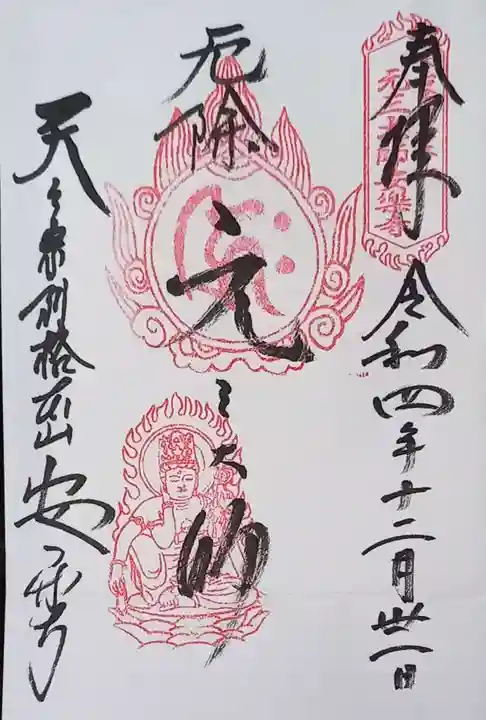 奉拝
令和四年十二月卅一日
厄除
元三大師
天台宗別格本山安楽寺